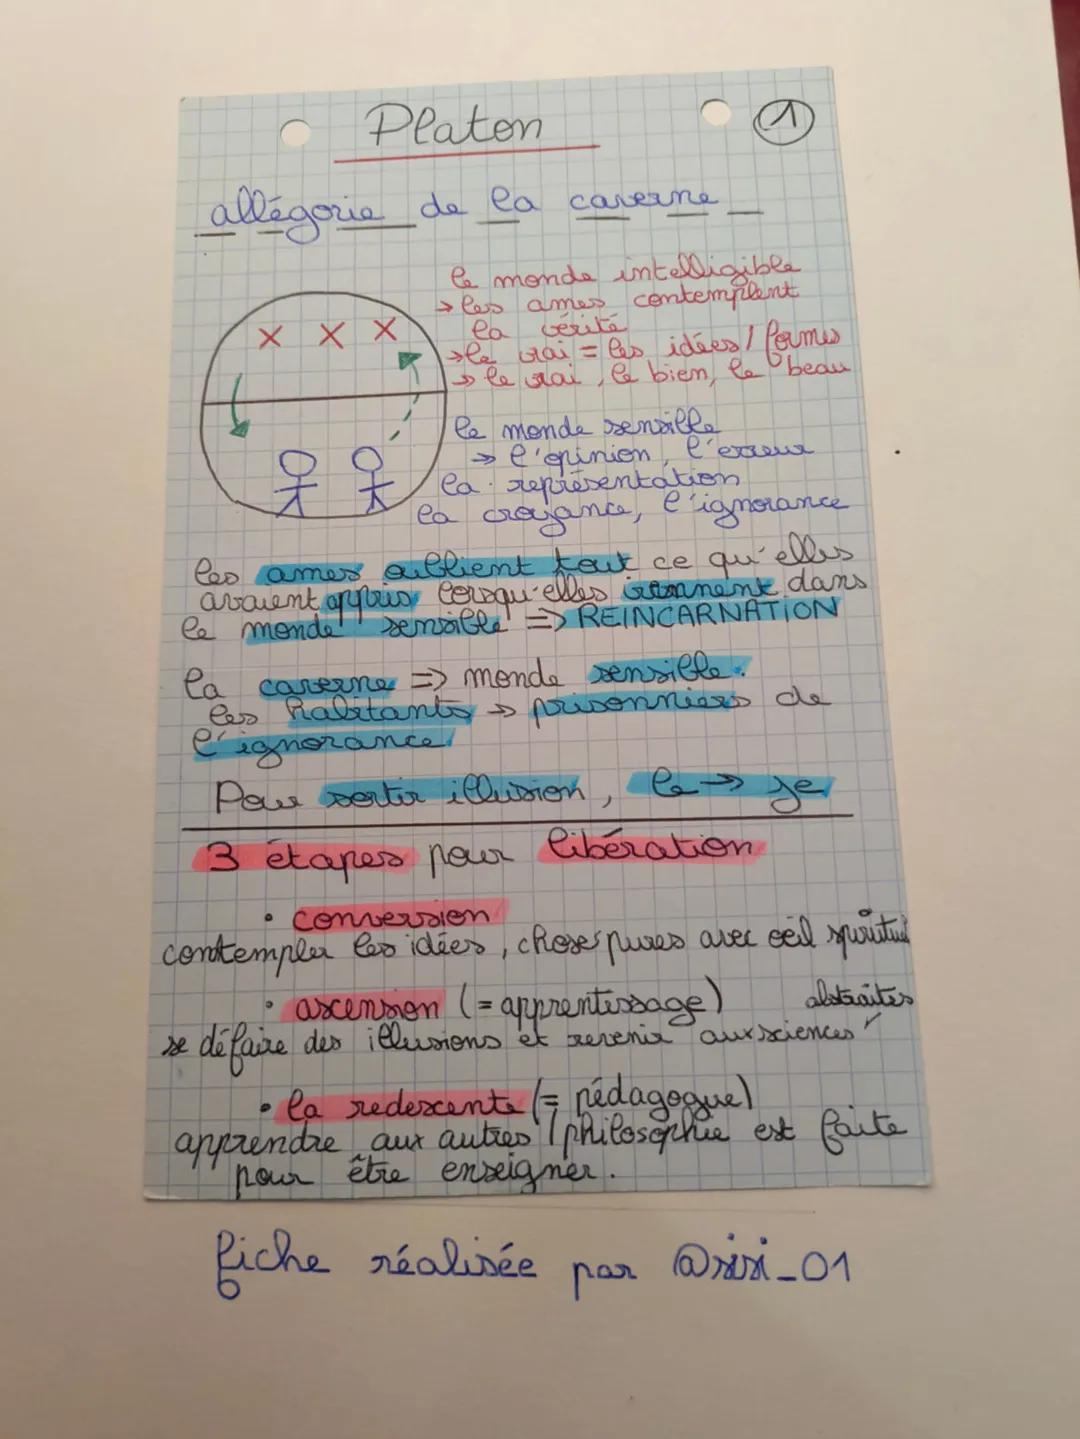 Platon
1
allégorie de la caverne
le monde intelligible
→ les ames contemplent
la vérité
→ le vrai = les idées / formes
→ le vrai, le bien, le beau
X X X
le monde sensible
→ l'opinion, l'erreur
la représentation
la croyance, l'ignorance
les ames oublient tout ce qu'elles
avaient appris lorsqu'elles viennent dans
le monde sensible => REINCARNATION
la caverne => monde sensible.
les habitants → prisonniers de
l'ignorance.
Pour sortir illusion, le → je
3 étapes pour libération
• conversion
contempler les idées, choses pures avec oeil spirituel
• ascension (= apprentissage)
se défaire des illusions et revenir aux sciences abstraites
• la redescente (= pédagogue)
apprendre aux autres / philosophie est faite
pour être enseigner.
fiche réalisée par @sisi_01